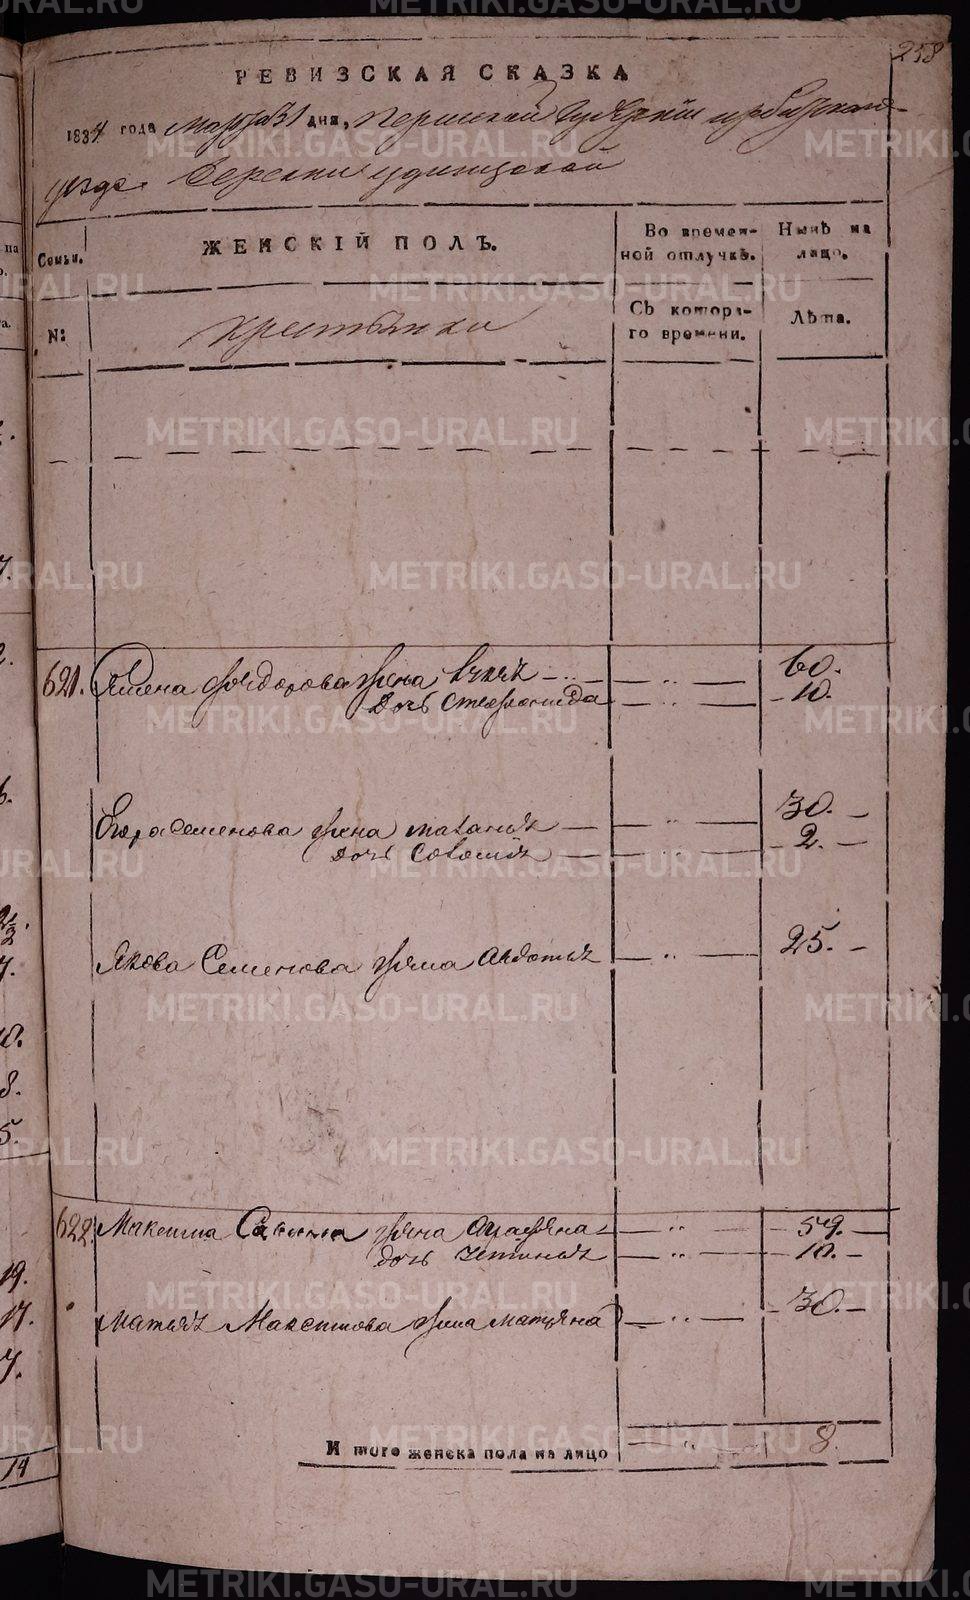 258
РЕВИЗСКАЯ СКАЗКА
1834 года марта 31 дня, Пермской Губернии Ирбитскаго
уезда Деревни Удинцовой
Семьи.
ЖЕНСКІЙ ПОЛЪ.
Во времен-
ной отлучкѣ.
Нынѣ на
лицо.
N:
Крестьянки
Съ котора-
го времени.
Лѣта.
621.
Семена Феодорова жена 60.
Дочь Степонида 10.
Егора Семенова жена Маланья 30.
дочь Соломія 2.
Якова Семенова жена Авдотья 25.
622.
Максима Савина жена 59.
дочь Устинья 10.
Матвея Максимова жена 30.
И того женска пола на лицо 8.
METRIKI.GASO-URAL.RU